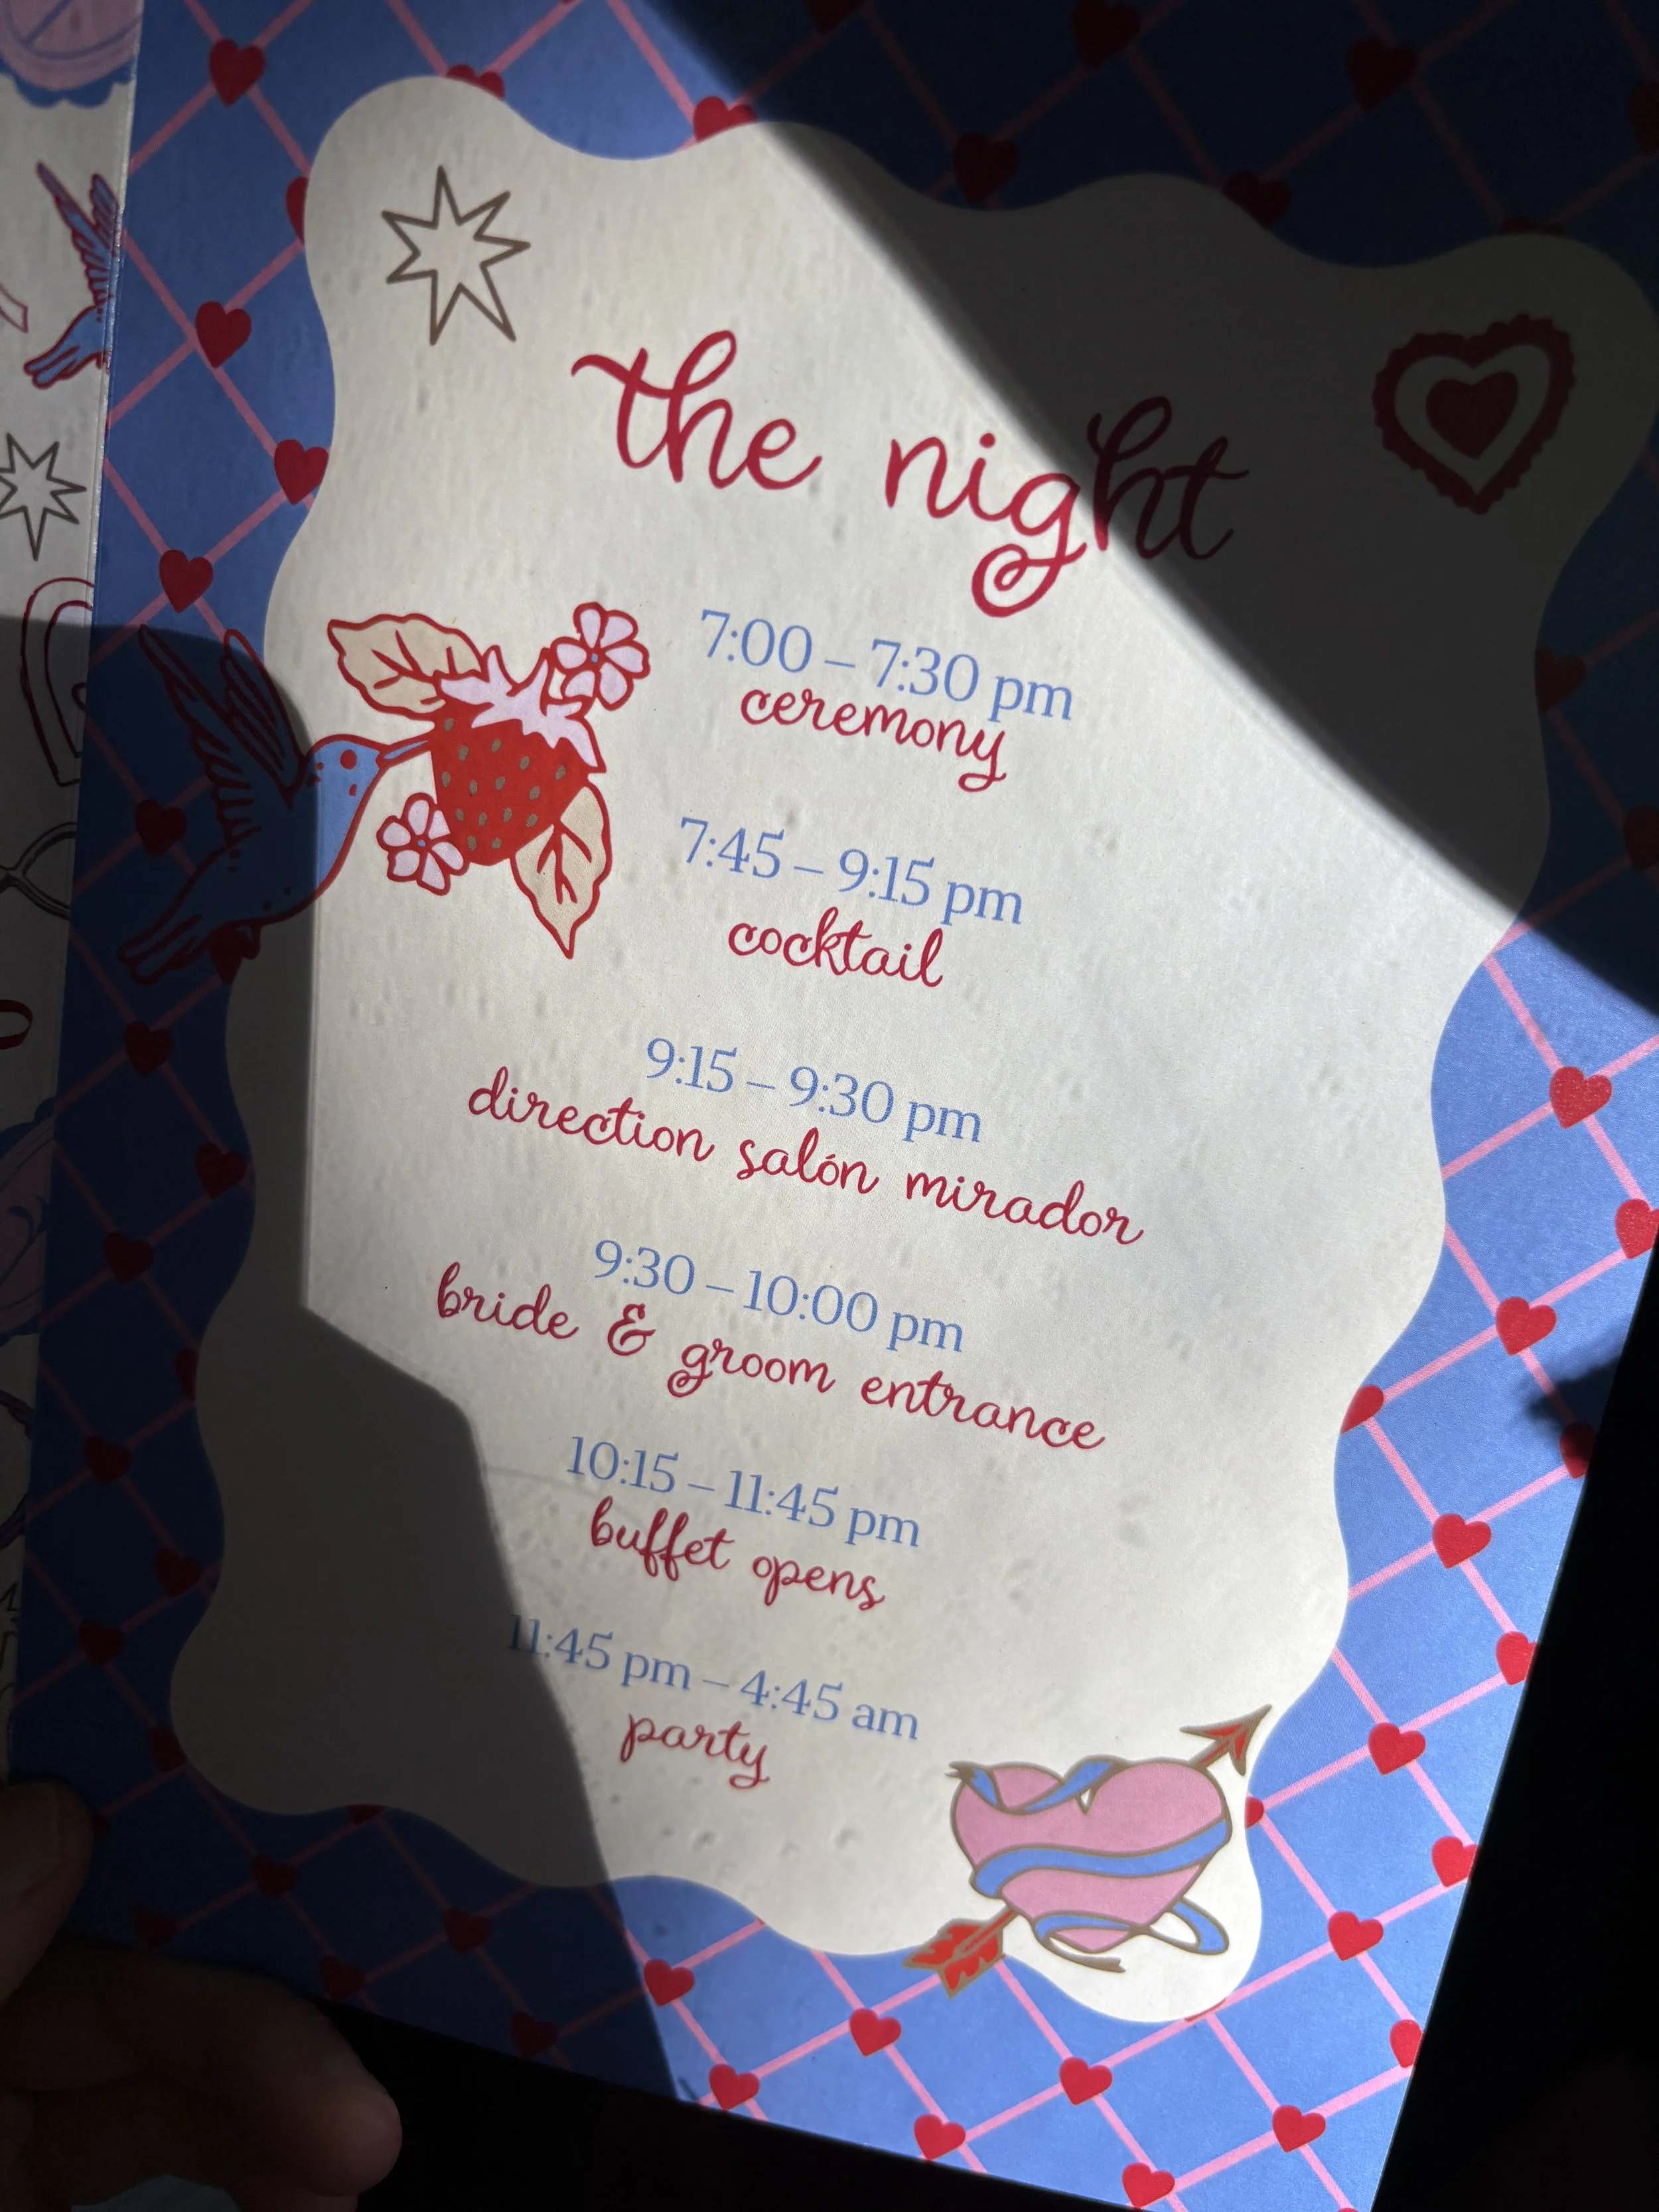 the night
7:00 – 7:30 pm
ceremony
7:45 – 9:15 pm
cocktail
9:15 – 9:30 pm
direction salón mirador
9:30 – 10:00 pm
bride & groom entrance
10:15 – 11:45 pm
buffet opens
11:45 pm – 4:45 am
party